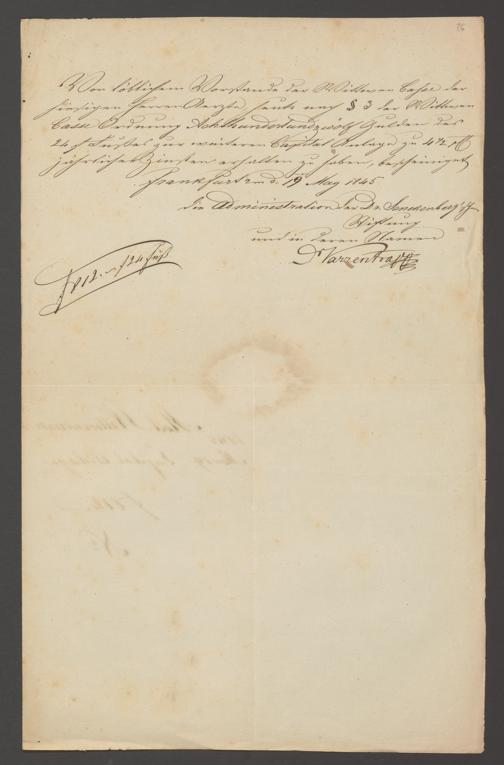 76
Von löblichem Vorstande der Wittwen Casse der
hiesigen Herren Aerzte, heute nach § 3 der Wittwen
Casse Ordnung Achthundertundzwölf Gulden des
24 f Fusses zur weiteren Capital Anlage zu 4 1/2 pCt
jährlicher Zinsen erhalten zu haben, bescheiniget
Frankfurt a/m d. 19 May 1845
die Administration der Dr. Senckenberg'schen
Stiftung
und in deren Namen
Dr Varrentrapp
f 812.- in f 24 Fuß